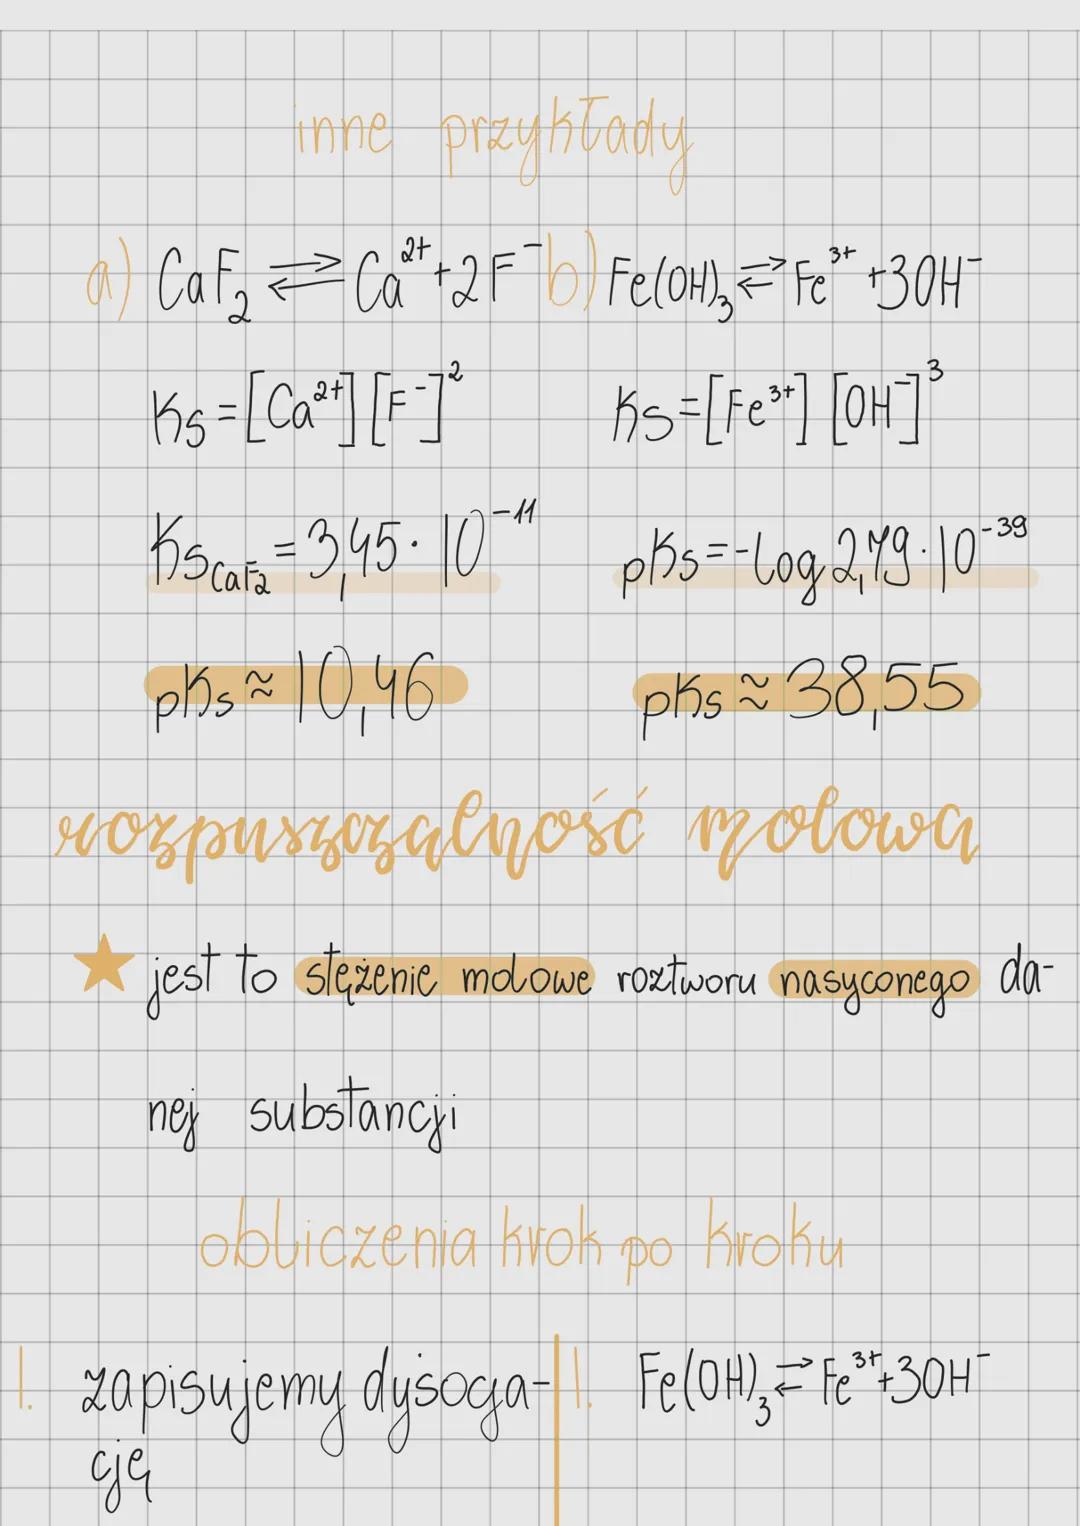 inne przykłady
a) CaF₂ ⇌ Ca²⁺ + 2F⁻ b) Fe(OH)₃ ⇌ Fe³⁺ + 3OH⁻
Ks = [Ca²⁺] [F⁻]² Ks = [Fe³⁺] [OH⁻]³
Ks CaF₂ = 3,45 · 10⁻¹¹ pKs = -log 2,79 · 10⁻³⁹
pKs ≈ 10,46 pKs ≈ 38,55
rozpuszczalność molowa
★ jest to stężenie molowe roztworu nasyconego da-
nej substancji
obliczenia krok po kroku
1. zapisujemy dysocja- 1. Fe(OH)₃ ⇌ Fe³⁺ + 3OH⁻
cję